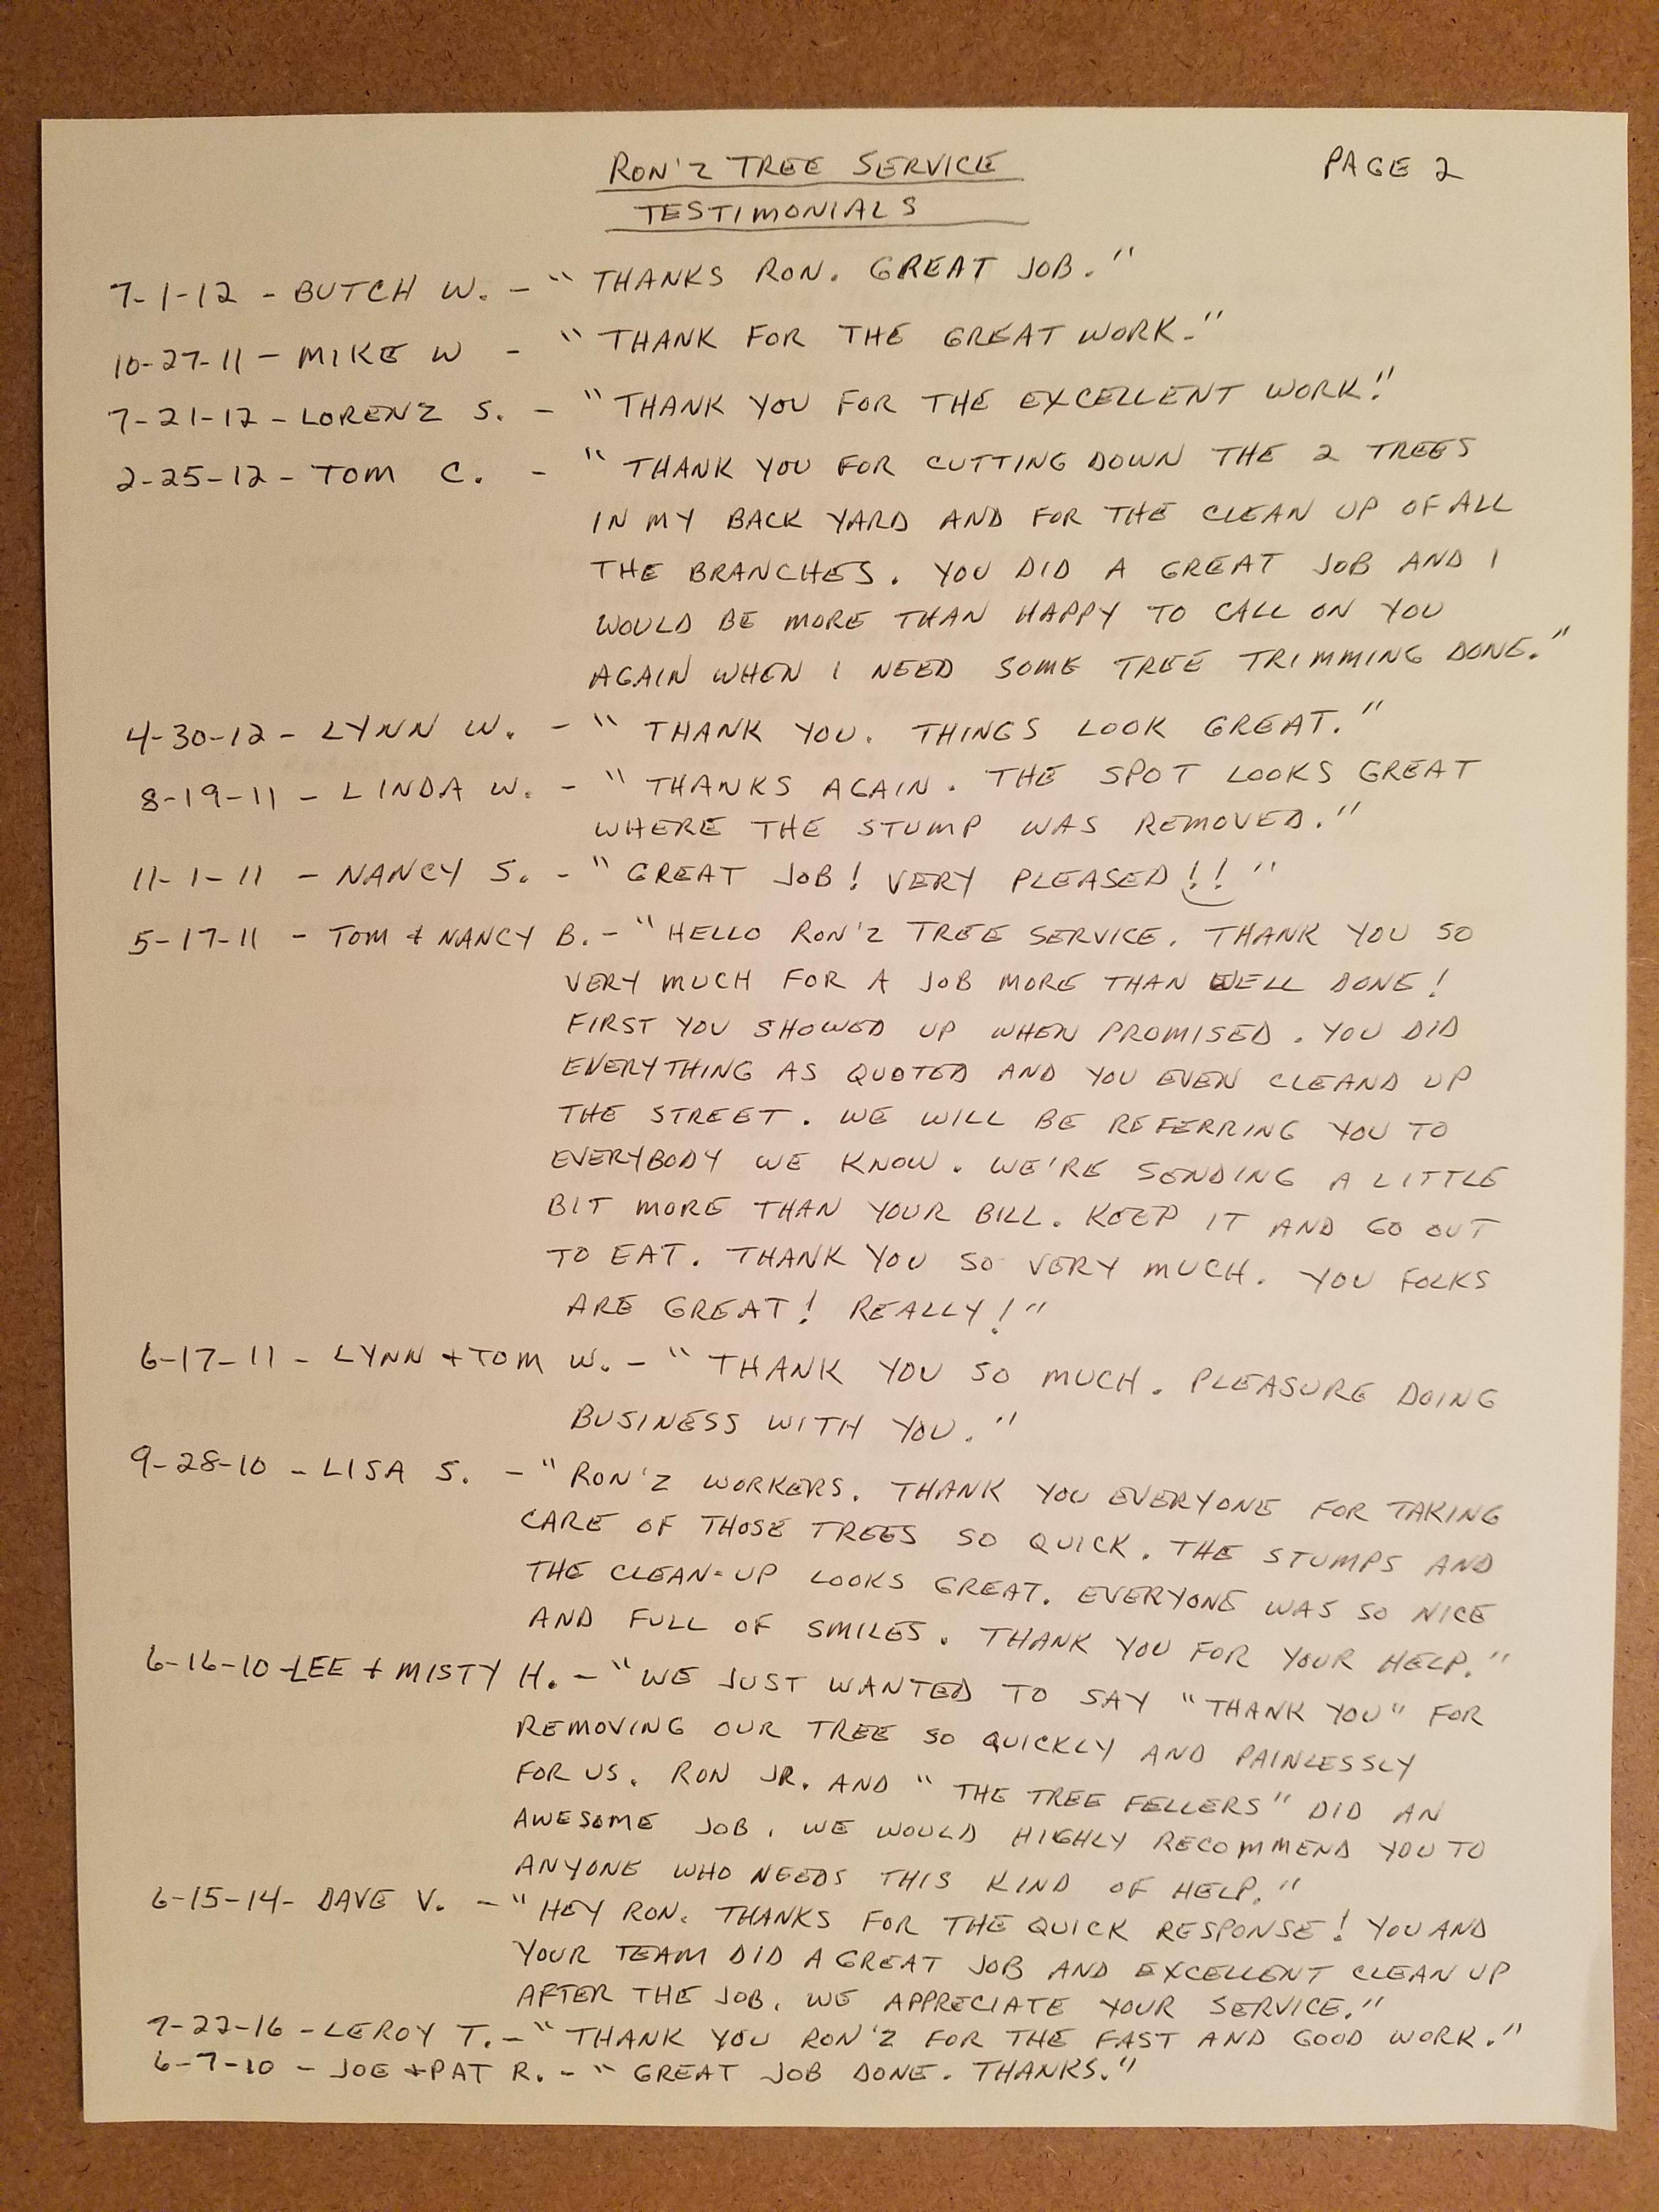 RON'Z TREE SERVICE PAGE 2
TESTIMONIALS
7-1-12 - BUTCH W. - "THANKS RON. GREAT JOB."
10-27-11 - MIKE W - "THANK FOR THE GREAT WORK."
7-21-12 - LORENZ S. - "THANK YOU FOR THE EXCELLENT WORK!"
2-25-12 - TOM C. - "THANK YOU FOR CUTTING DOWN THE 2 TREES
IN MY BACK YARD AND FOR THE CLEAN UP OF ALL
THE BRANCHES. YOU DID A GREAT JOB AND I
WOULD BE MORE THAN HAPPY TO CALL ON YOU
AGAIN WHEN I NEED SOME TREE TRIMMING DONE."
4-30-12 - LYNN W. - "THANK YOU. THINGS LOOK GREAT."
8-19-11 - LINDA W. - "THANKS AGAIN. THE SPOT LOOKS GREAT
WHERE THE STUMP WAS REMOVED."
11-1-11 - NANCY S. - "GREAT JOB! VERY PLEASED!!"
5-17-11 - TOM + NANCY B. - "HELLO RON'Z TREE SERVICE. THANK YOU SO
VERY MUCH FOR A JOB MORE THAN WELL DONE!
FIRST YOU SHOWED UP WHEN PROMISED. YOU DID
EVERYTHING AS QUOTED AND YOU EVEN CLEAND UP
THE STREET. WE WILL BE REFERRING YOU TO
EVERYBODY WE KNOW. WE'RE SENDING A LITTLE
BIT MORE THAN YOUR BILL. KEEP IT AND GO OUT
TO EAT. THANK YOU SO VERY MUCH. YOU FOLKS
ARE GREAT! REALLY!"
6-17-11 - LYNN + TOM W. - "THANK YOU SO MUCH. PLEASURE DOING
BUSINESS WITH YOU."
9-28-10 - LISA S. - "RON'Z WORKERS. THANK YOU EVERYONE FOR TAKING
CARE OF THOSE TREES SO QUICK. THE STUMPS AND
THE CLEAN-UP LOOKS GREAT. EVERYONE WAS SO NICE
AND FULL OF SMILES. THANK YOU FOR YOUR HELP."
6-16-10 - LEE + MISTY H. - "WE JUST WANTED TO SAY "THANK YOU" FOR
REMOVING OUR TREE SO QUICKLY AND PAINLESSLY
FOR US. RON JR. AND "THE TREE FELLERS" DID AN
AWESOME JOB. WE WOULD HIGHLY RECOMMEND YOU TO
ANYONE WHO NEEDS THIS KIND OF HELP."
6-15-14 - DAVE V. - "HEY RON. THANKS FOR THE QUICK RESPONSE! YOU AND
YOUR TEAM DID A GREAT JOB AND EXCELLENT CLEAN UP
AFTER THE JOB. WE APPRECIATE YOUR SERVICE."
7-27-16 - LEROY T. - "THANK YOU RON'Z FOR THE FAST AND GOOD WORK."
6-7-10 - JOE + PAT R. - "GREAT JOB DONE. THANKS."